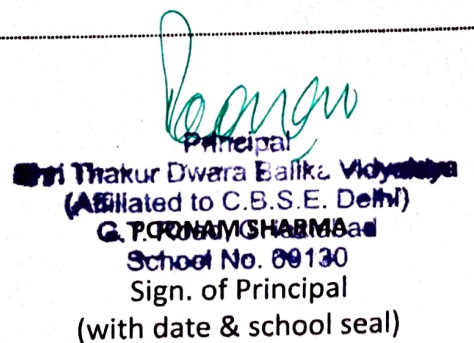 Poonam
Principal
Shri Thakur Dwara Balika Vidyalaya
(Affiliated to C.B.S.E. Delhi)
G.T. Road, Ghaziabad
POONAM SHARMA
School No. 09130
Sign. of Principal
(with date & school seal)